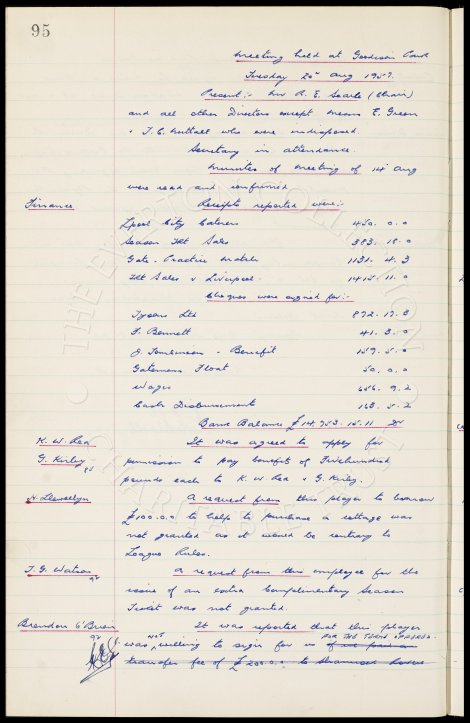 95
Meeting held at Goodison Park
Tuesday 20th Aug 1957.
Present:- Mr R. E. Searle (Chair)
and all other Directors except Messrs E. Green
& T. C. Nuttall who were indisposed.
Secretary in attendance.
Minutes of meeting of 14 Aug
were read and confirmed
Finance Receipts reported were:-
Lpool City Caterers 450. 0. 0
Season Tkt Sales 383. 18. 0
Gate. Practice match 1131. 4. 3
Tkt Sales v Liverpool. 1415. 11. 0
Cheques were signed for:-
Tysons Ltd 892. 17. 8
F. Bennett 41. 3. 0
J. Tomlinson - Benefit 159. 5. 0
Gatemens Float 50. 0. 0
Wages 656. 9. 2
Cash Disbursement 163. 5. 2
Bank Balance £14,953. 15. 11 Dr
K. W. Rea It was agreed to apply for
G. Kirby permission to pay benefit of Five hundred
pounds each to K. W. Rea & G. Kirby.
H. Llewellyn A request from this player to borrow
£100.0.0 to help to purchase a cottage was
not granted as it would be contrary to
League Rules.
T. G. Watson A request from this employee for the
issue of an extra Complimentary Season
Ticket was not granted.
Brendon O'Brien It was reported that this player
was not willing to sign for us FOR THE TERMS OFFERED.
transfer fee of £200.0.0 to Shamrock Rovers
THE EVERTON COLLECTION CHARITABLE TRUST